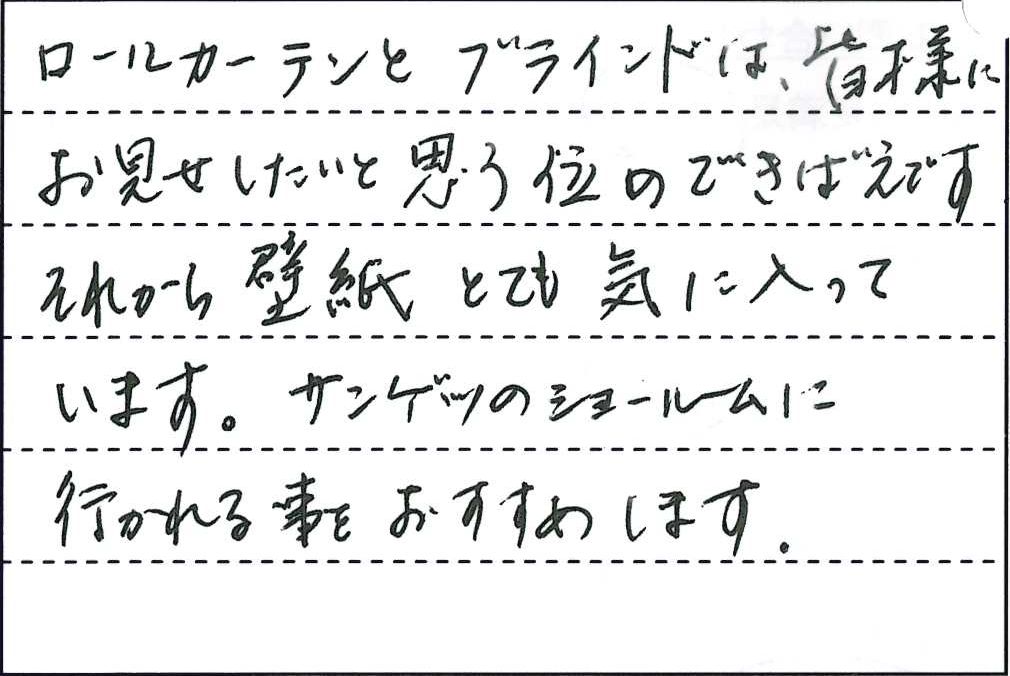 ロールカーテンと ブラインドは、皆様に
お見せしたいと思う位のできばえです
それから壁紙とても気に入って
います。サンゲツのショールームに
行かれる事をおすすめします.